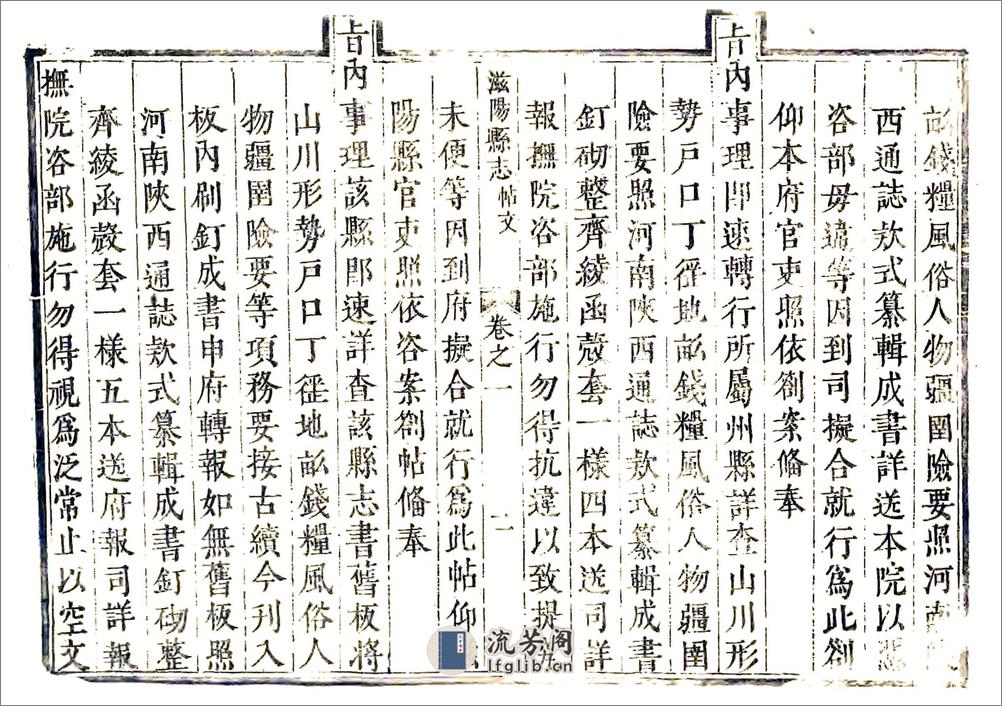 畝錢糧風俗人物疆圉險要照河南陝
西通誌欵式纂輯成書詳送本院以憑
咨部毋違等因到司擬合就行爲此劄
仰本府官吏照依劄案俻奉
旨內事理卽速轉行所屬州縣詳查山川形
勢戶口丁徭地畝錢糧風俗人物疆圉
險要照河南陝西通誌欵式纂輯成書
釘砌整齊綾函殼套一樣四本送司詳
報撫院咨部施行勿得抗違以致提
滋陽縣志 帖文 卷之一 二
未便等因到府擬合就行爲此帖仰
陽縣官吏照依咨案劄帖俻奉
旨內事理該縣卽速詳查該縣志書舊板將
山川形勢戶口丁徭地畝錢糧風俗人
物疆圉險要等項務要接古續今刊入
板內刷釘成書申府轉報如無舊板照
河南陝西通誌欵式纂輯成書釘砌整
齊綾函殼套一樣五本送府報司詳報
撫院咨部施行勿得視爲泛常止以空文
流芳阁
lfglib.cn